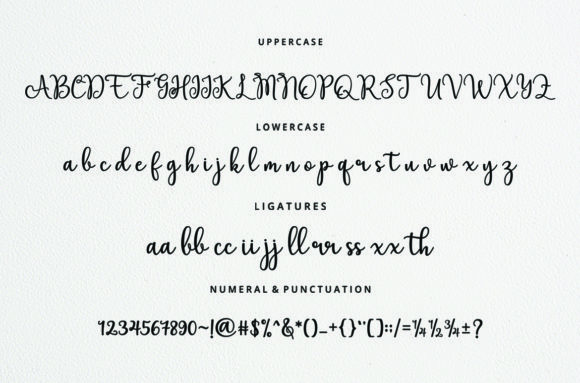 UPPERCASE
ABCDEFGHIJKLMNOPQRSTUVWXYZ
LOWERCASE
a b c d e f g h i j k l m n o p q r s t u v w x y z
LIGATURES
aa bb cc ii jj ll rr ss xx th
NUMERAL & PUNCTUATION
1234567890~!@#$%^&*()_+{}"[]::/=¼½¾±?